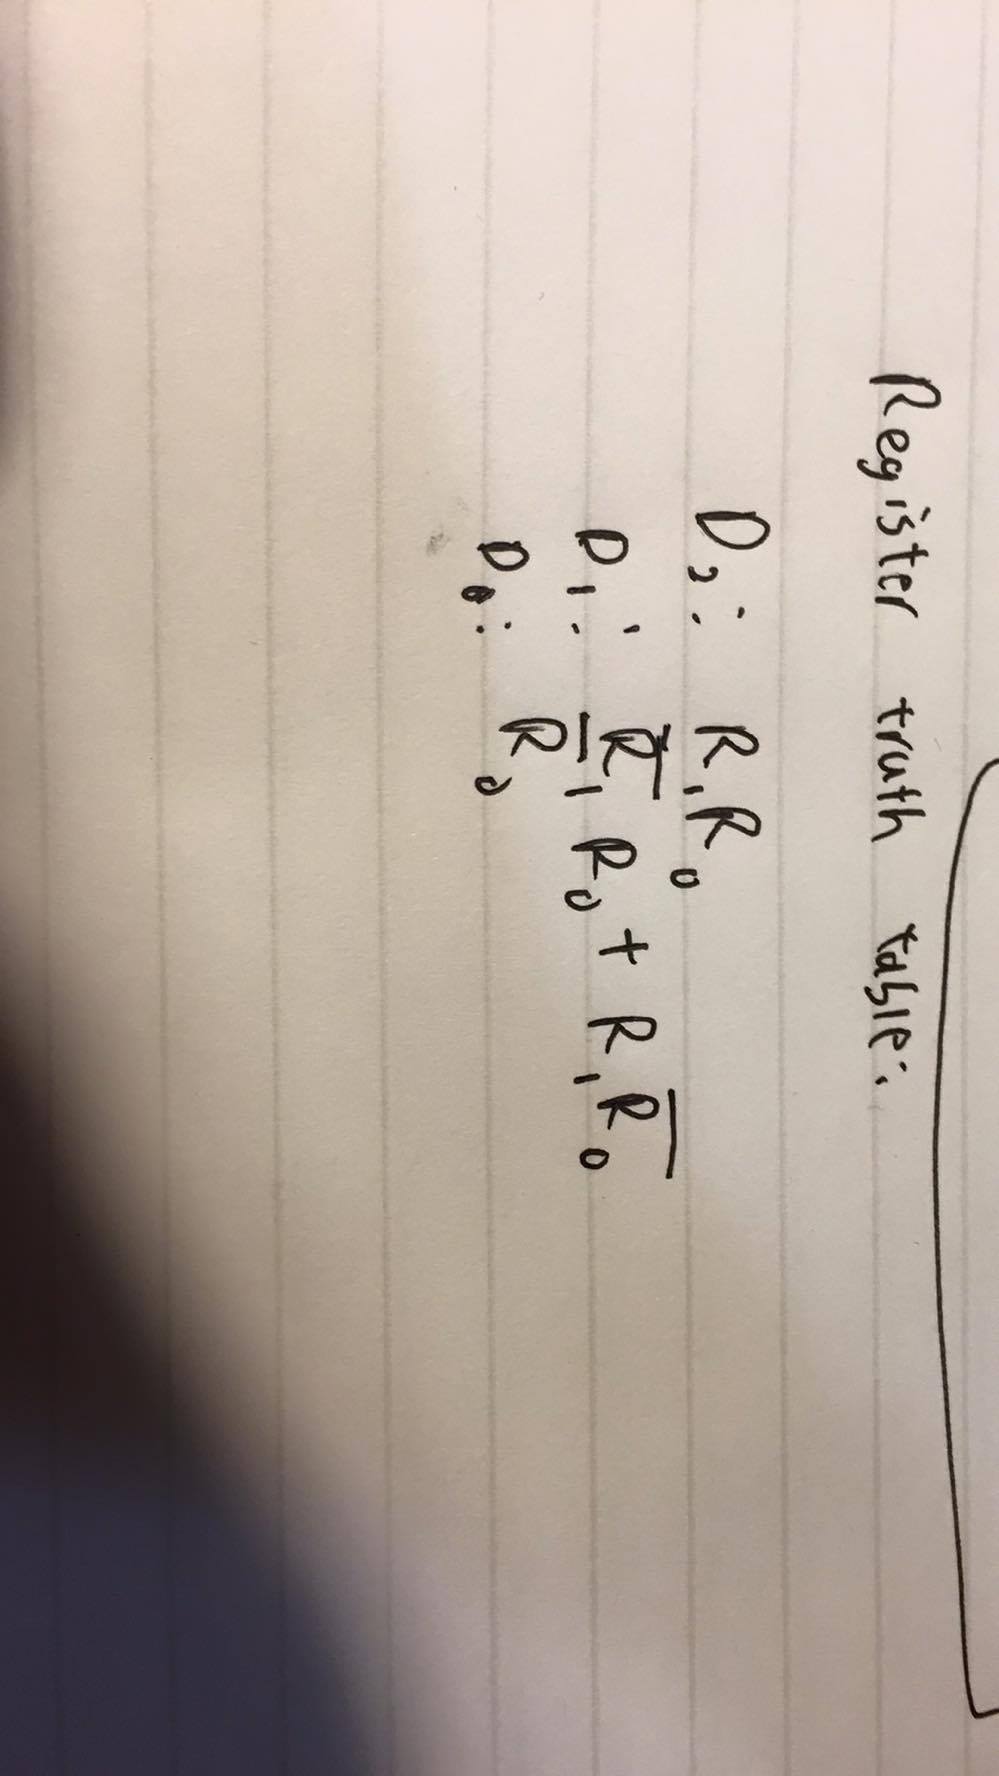 Register truth table:
D₂: R₁R₀
D₁: R̅₁R₀ + R₁R̅₀
D₀: R̅₀